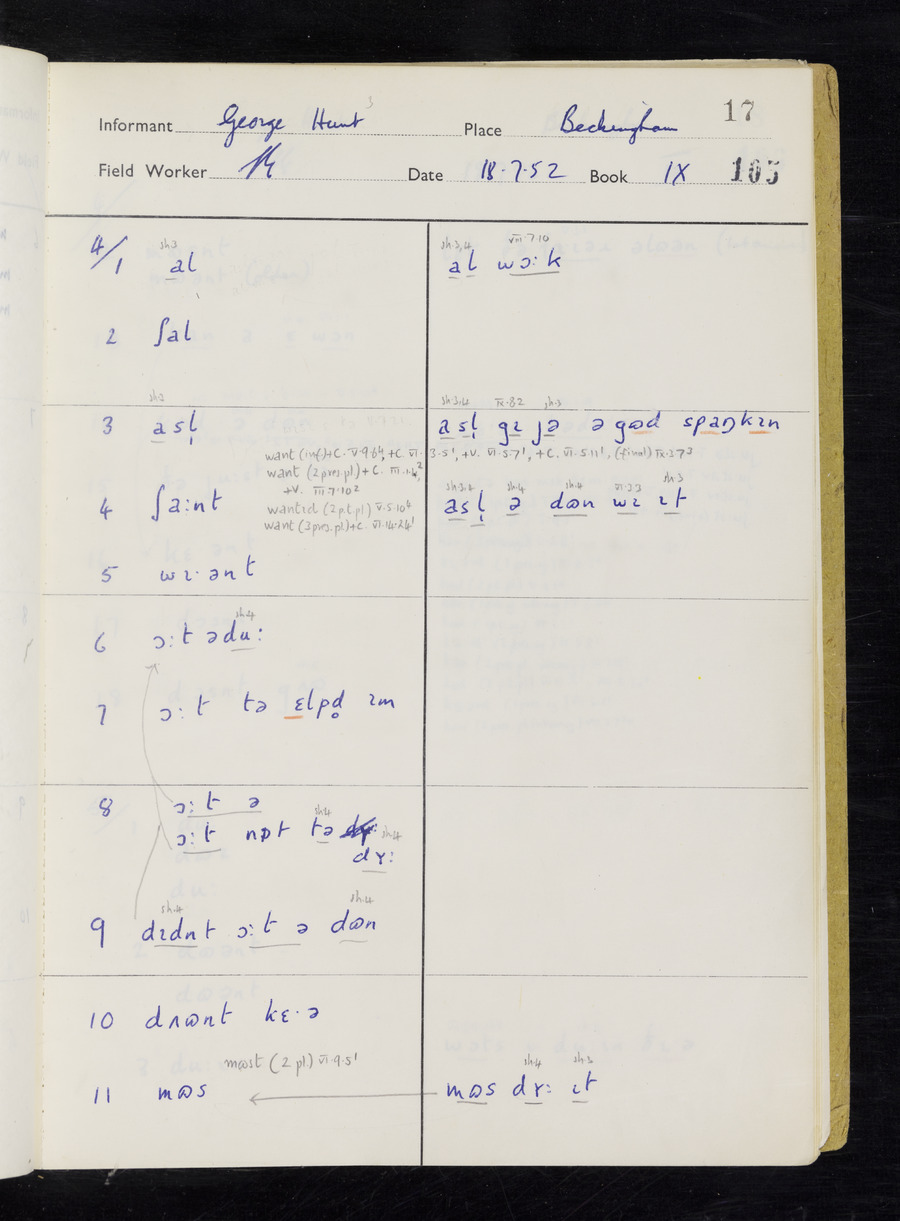 17
Informant George Hunt 3 Place Beckingham
Field Worker Date 18·7·52 Book IX 165
sh.3
4/1 al
sh.3,4 VII·7·10
al wɔ:k
2 ʃal
sh.3
3 asl̩
sh.3,4 IX·8·2 sh.3
asl̩ gɪ jə ə gɷd spaŋkɪn
want (inf.)+C. V·9·6⁴, +C. VI·3·5¹, +V. VI·5·7¹, +C. VI·5·11¹, (final) IX·3·7³
want (2 pres. pl.)+C. III·1·4²,
+V. III·7·10²
4 ʃa:nt
wantɪd (2 p.t. pl) V·5·10⁴
want (3 pres. pl)+C. VI·14·24¹
sh.3,4 sh.4 sh.4 VI·3·3 sh.3
asl̩ ə dɷn wɪ ɪt
5 wɪ·ənt
sh.4
6 ɔ:t ədu:
7 ɔ:t tə ɛlpd̥ ɪm
8 ɔ:t ə
sh.4
ɔ:t nɒt tə
sh.4
dʏ:
sh.4 sh.4
9 dɪdnt ɔ:t ə dɷn
10 dʌɷnt kɛ·ə
mɷst (2 pl) VI·9·5¹
11 mɷs
sh.4 sh.3
mɷs dʏ: ɪt